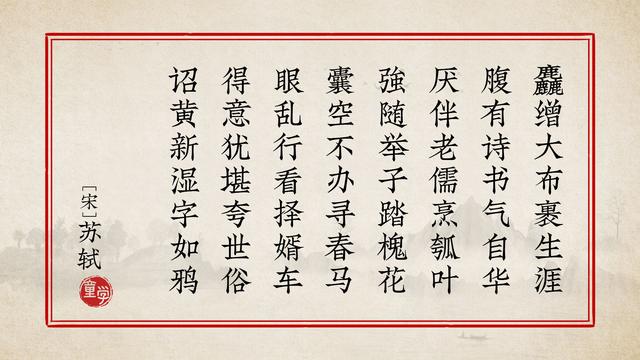 麤缯大布裹生涯
腹有诗书气自华
厌伴老儒烹瓠叶
強随举子踏槐花
囊空不办寻春马
眼乱行看择婿车
得意犹堪夸世俗
诏黄新湿字如鸦
[宋]苏轼
童学